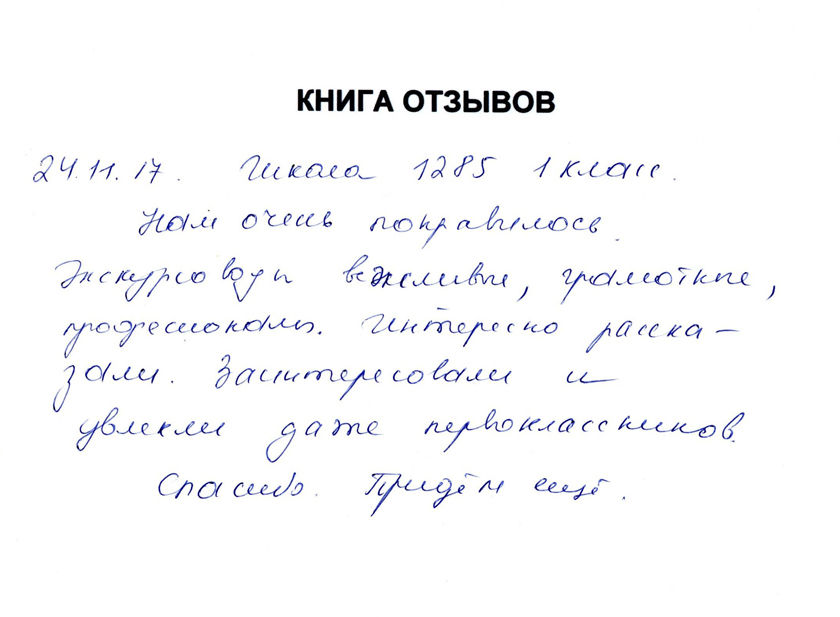 КНИГА ОТЗЫВОВ
24.11.17. Школа 1285 1 класс.
Нам очень понравилось.
Экскурсоводы вежливые, грамотные,
профессионалы. Интересно расска-
зали. Заинтересовали и
увлекли даже первоклассников.
Спасибо. Придём ещё.